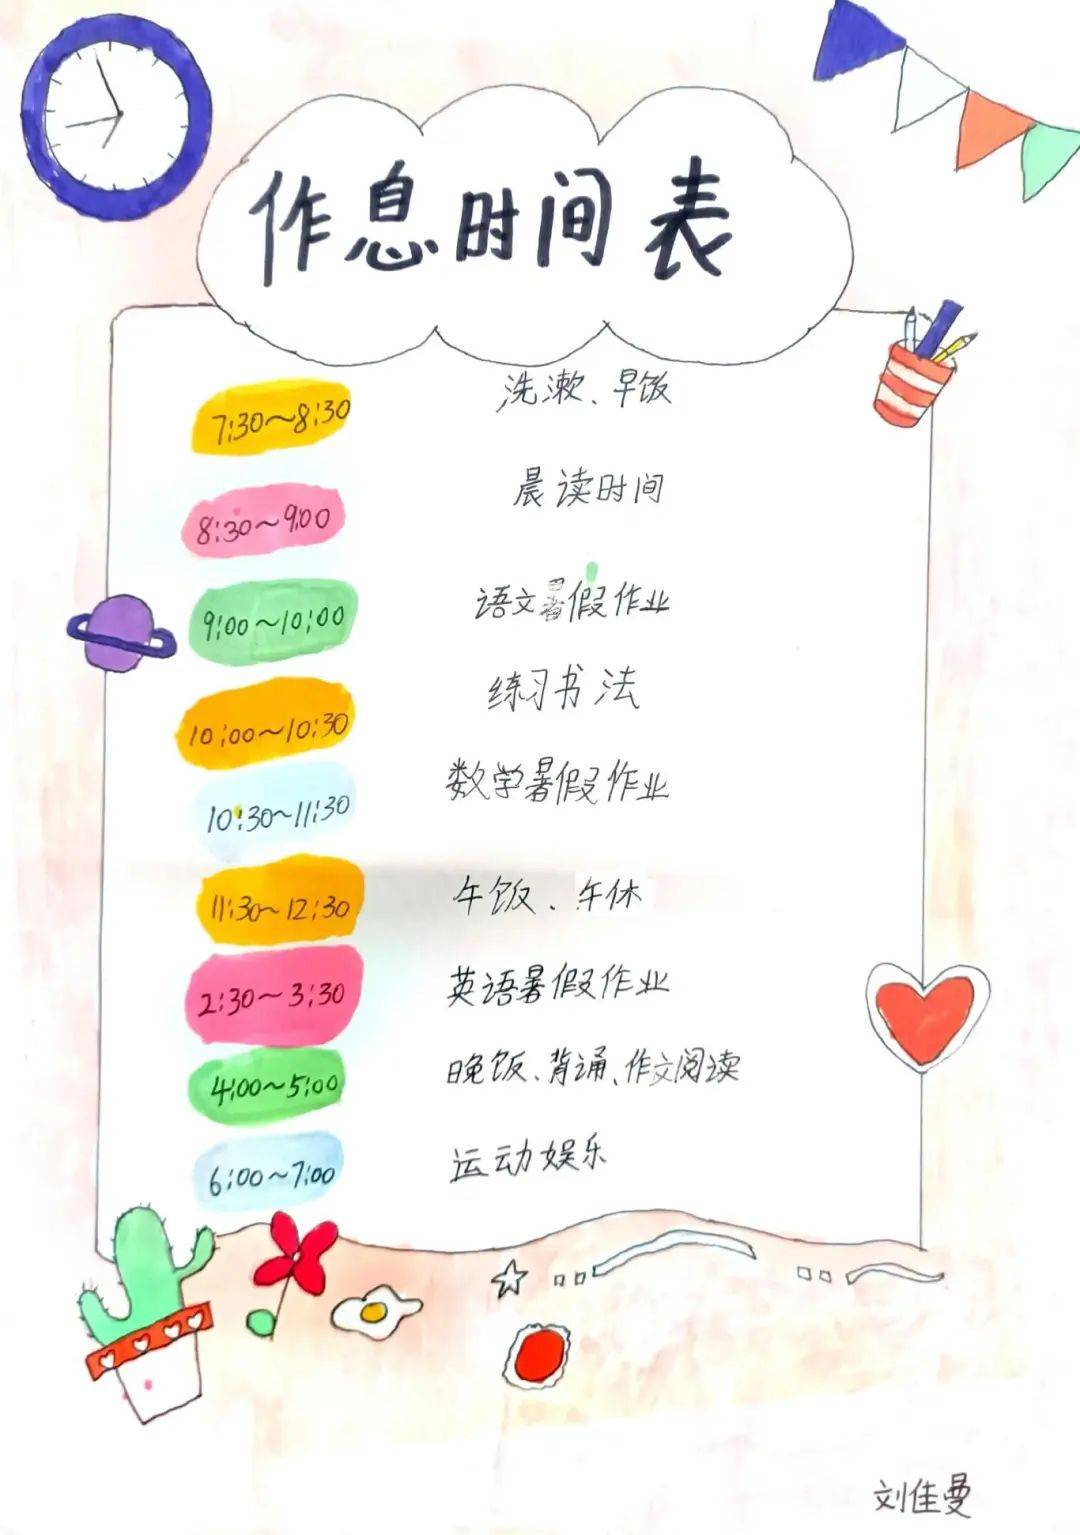 作息时间表
7:30~8:30 洗漱、早饭
8:30~9:00 晨读时间
9:00~10:00 语文暑假作业
10:00~10:30 练习书法
10:30~11:30 数学暑假作业
11:30~12:30 午饭、午休
2:30~3:30 英语暑假作业
4:00~5:00 晚饭、背诵、作文阅读
6:00~7:00 运动娱乐
刘佳曼